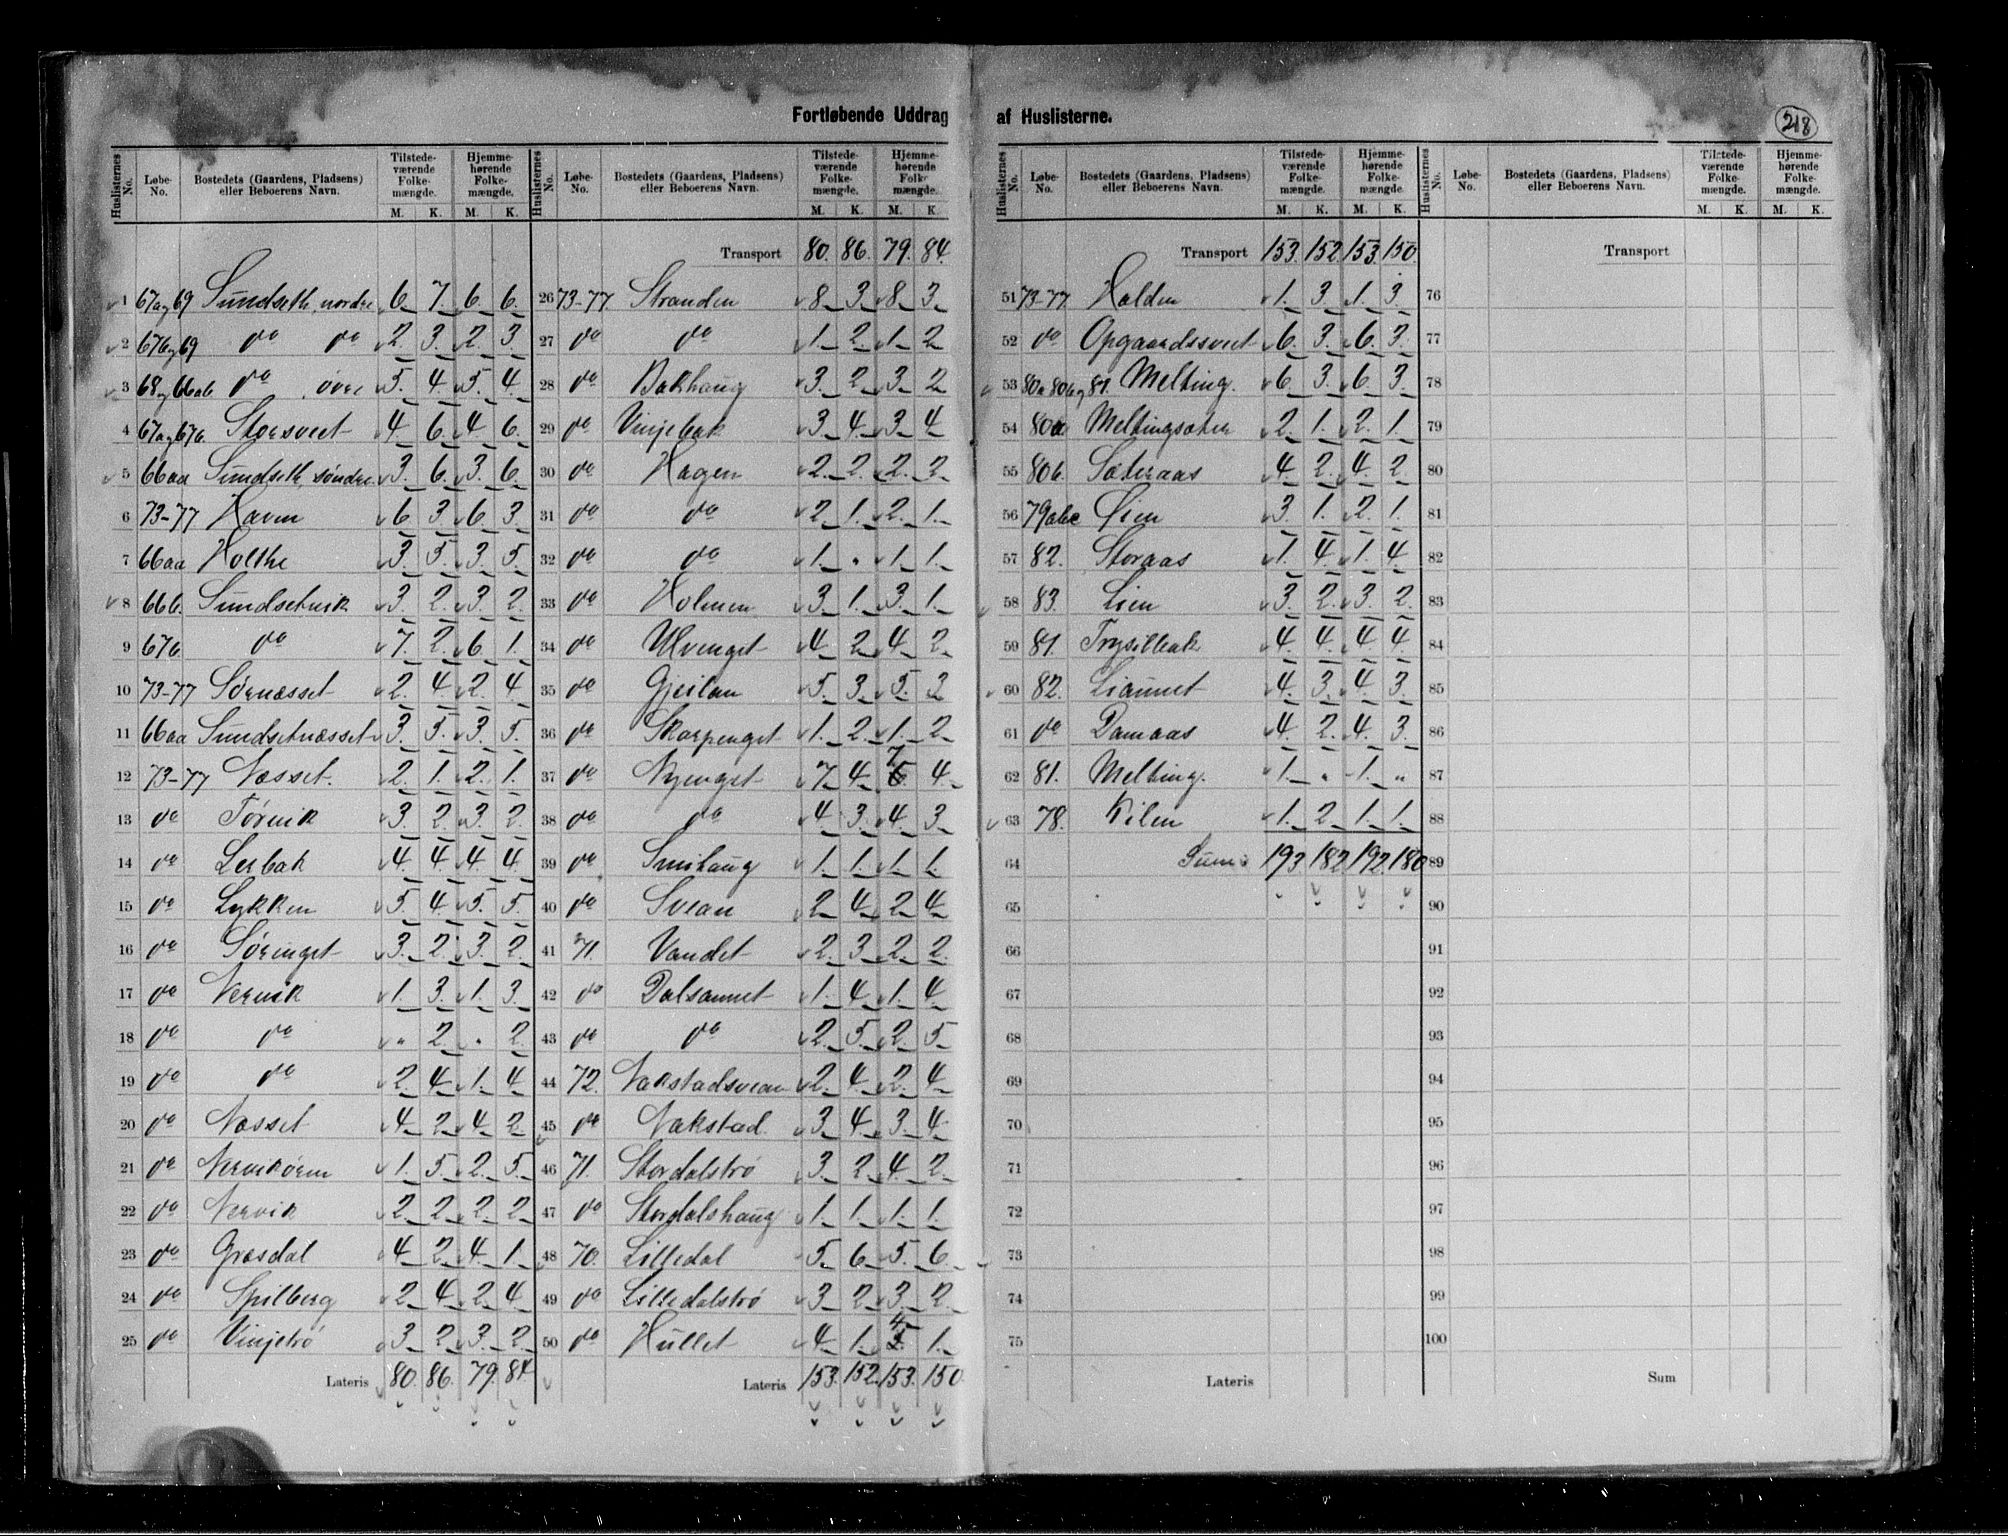 Fortløbende Uddrag af Huslisterne.
218
Huslisternes No. Løbe-No. Bostedets (Gaardens, Pladsens) eller Beboerens Navn. Tilstedeværende Folkemængde. M. K. Hjemmehørende Folkemængde. M. K.
1 67a og 69 Sundseth, nordre 6 7 6 6
2 67b og 69 do do 2 3 2 3
3 68 og 66ab do øvre 5 4 5 4
4 67a og 67b Storsveet 4 6 4 6
5 66aa Sundseth, søndre 3 6 3 6
6 73-77 Haven 6 3 6 3
7 66aa Holthe 3 5 3 5
8 66b Sundsetvik 3 2 3 2
9 67b do 7 2 6 1
10 73-77 Sørnæsset 2 4 2 4
11 66aa Sundsetnæsset 3 5 3 5
12 73-77 Næsset 2 1 2 1
13 do Tørvik 3 2 3 2
14 do Lerbak 4 4 4 4
15 do Lykken 5 4 5 5
16 do Sørenget 3 2 3 2
17 do Nervik 1 3 1 3
18 do do " 2 " 2
19 do do 2 4 1 4
20 do Næsset 4 2 4 2
21 do Nervikøren 1 5 2 5
22 do Nervik 2 2 2 2
23 do Græsdal 4 2 4 1
24 do Spilberg 2 4 2 4
25 do Vinjetrø 3 2 3 2
Lateris 80 86 79 84
Huslisternes No. Løbe-No. Bostedets (Gaardens, Pladsens) eller Beboerens Navn. Tilstedeværende Folkemængde. M. K. Hjemmehørende Folkemængde. M. K.
Transport 80. 86. 79. 84.
26 73-77. Stranden 8 3 8 3
27 do do 1 2 1 2
28 do Bakhaug 3 2 3 2
29 do Vinjebak 3 4 3 4
30 do Hagen 2 2 2 2
31 do do 2 1 2 1
32 do do 1 " 1 1
33 do Holmen 3 1 3 1
34 do Ulvenget 4 2 4 2
35 do Gjeilan 5 3 5 3
36 do Skarpenget 1 2 1 2
37 do Nyenget 7 4 7 4
38 do do 4 3 4 3
39 do Smihaug 1 1 1 1
40 do Svean 2 4 2 4
41 71. Vandet 2 3 2 2
42 do Dalsaunet 1 4 1 4
43 do do 2 5 2 5
44 72. Nakstadsvean 2 4 2 4
45 do Nakstad 3 4 3 4
46 71. Stordalstrø 3 2 4 2
47 do Stordalshaug 1 1 1 1
48 70. Lilledal 5 6 5 6
49 do Lilledalstrø 3 2 3 2
50 do Hullet 4 1 4 1
Lateris 153. 152. 153. 150
Huslisternes No. Løbe-No. Bostedets (Gaardens, Pladsens) eller Beboerens Navn. Tilstedeværende Folkemængde. M. K. Hjemmehørende Folkemængde. M. K.
Transport 153. 152. 153. 150.
51 73-77. Halden 1 3 1 3
52 do Opgaardssveet 6 3 6 3
53 80a 80b og 81. Melting. 6 3 6 3
54 80a Meltingsæter 2 1 2 1
55 80b. Sæteraas 4 2 4 2
56 79abc Lien 3 1 2 1
57 82. Storaas 1 4 1 4
58 83. Lien 3 2 3 2
59 81. Trysilbak 4 4 4 4
60 82. Liaunet 4 3 4 3
61 do Damaas 4 2 4 3
62 81. Melting. 1 " 1 "
63 78. Kilen 1 2 1 1
64 Sum 193 182 192 180
65
66
67
68
69
70
71
72
73
74
75
Lateris
Huslisternes No. Løbe-No. Bostedets (Gaardens, Pladsens) eller Beboerens Navn. Tilstedeværende Folkemængde. M. K. Hjemmehørende Folkemængde. M. K.
Transport
76
77
78
79
80
81
82
83
84
85
86
87
88
89
90
91
92
93
94
95
96
97
98
99
100
Sum